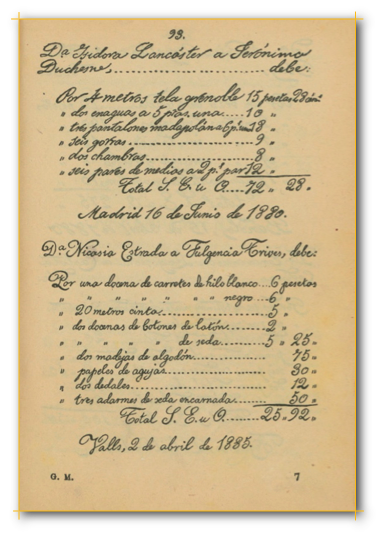 99.
Dª Isidora Lancáster a Jerónima
Duchesne, debe:
Por 4 metros tela grenoble 15 pesetas 28 ánˢ
" dos enaguas a 5 ptas. una 10 "
" tres pantalones madapolán a 6 p.ᵗ 18 "
" seis gorras 9 "
" dos chambras 8 "
" seis pares de medias a 2 p.ᵗ par 12 "
Total S. E. u O. 72 " 28 "
Madrid 16 de Junio de 1880.
Dª Nicasia Estrada a Fulgencia Trives, debe:
Por una docena de carretes de hilo blanco 6 pesetas
" " " " " " negro 6 "
" 20 metros cinta 5 "
" dos docenas de botones de latón 2 "
" " " " " de seda 5 " 25 "
" dos madejas de algodón 75 "
" papeles de agujas 30 "
" dos dedales 12 "
" tres adarmes de seda encarnada 50 "
Total S. E. u O. 25 " 92 "
Valls, 2 de abril de 1885.
G. M. 7